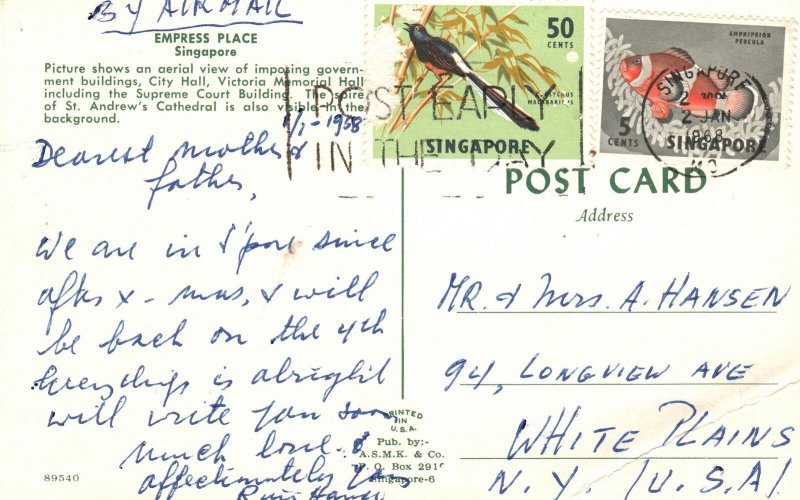 BY AIR MAIL
EMPRESS PLACE
Singapore
Picture shows an aerial view of imposing govern-
ment buildings, City Hall, Victoria Memorial Hall
including the Supreme Court Building. The spire
of St. Andrew's Cathedral is also visible in the
background.
1/1-1968
Dearest mother &
father,
We are in S'pore since
after x-mas, & will
be back on the 4th
Everythings is alright
will write you soon
Much love &
affectionately yours
89540
PRINTED
IN
U.S.A.
Pub. by:-
A.S.M.K. & Co.
P. O. Box 291
Singapore-6
50
CENTS
MALABARICUS
SINGAPORE
AMPHIPRION
PERCULA
5
CENTS
SINGAPORE
POST EARLY
IN THE DAY
SINGAPORE
2 JAN
1968
POST CARD
Address
MR. & Mrs. A. HANSEN
94, LONGVIEW AVE
WHITE PLAINS
N.Y. (U.S.A)